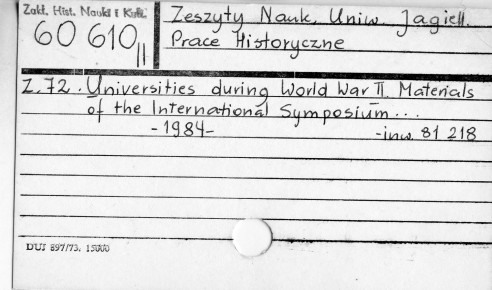 Zakł. Hist. Nauki i Kult.
60 610 II
Zeszyty Nauk. Uniw. Jagiell.
Prace Historyczne
Z. 72. Universities during World War II. Materials
of the International Symposium...
-1984-
-inw. 81 218
DUJ 897/73. 15000